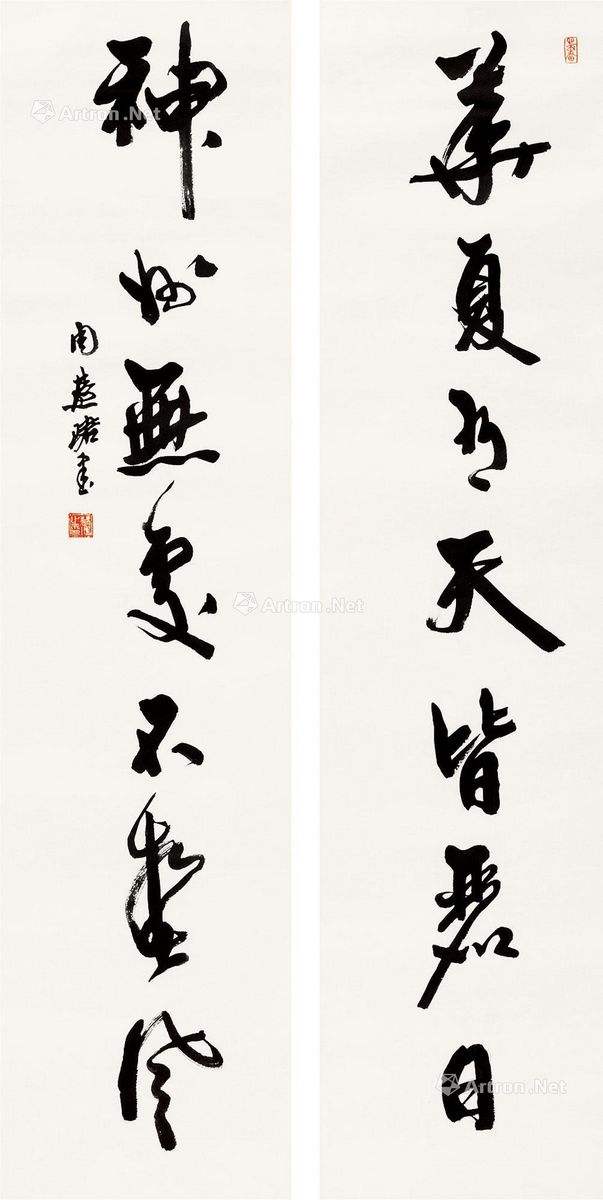 華夏有天皆麗日
神州無處不春風
周慧珺書
Artron.Net
Artron.Net
Artron.Net